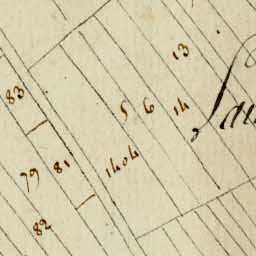 13
83
5 6 14
79 81 1404
82